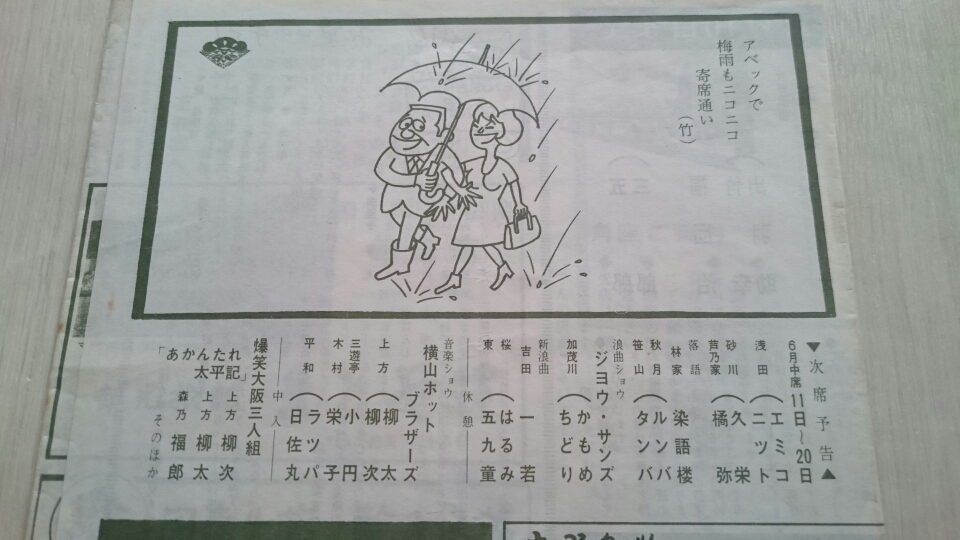 アベックで
梅雨もニコニコ
寄席通い
(竹)
▼次席予告▲
6月中席11日〜20日
浅田(エミコ
ニット
砂川 久栄
芦乃家(橘弥
落語
林家 染語楼
秋月(ルンバ
笹山 タンバ
浪曲ショウ
ジョウ・サンズ
加茂川(かもめ
ちどり
新浪曲
吉田一若
桜(はるみ
東 五九童
休憩
音楽ショウ
横山ホット
ブラザーズ
上方(柳太
柳次
三遊亭(小円
木村 栄子
平和(ラッパ
日佐丸
中入
爆笑大阪三人組
「あかんたれ
太平記」
上方柳次
上方柳太
森乃福郎
そのほか